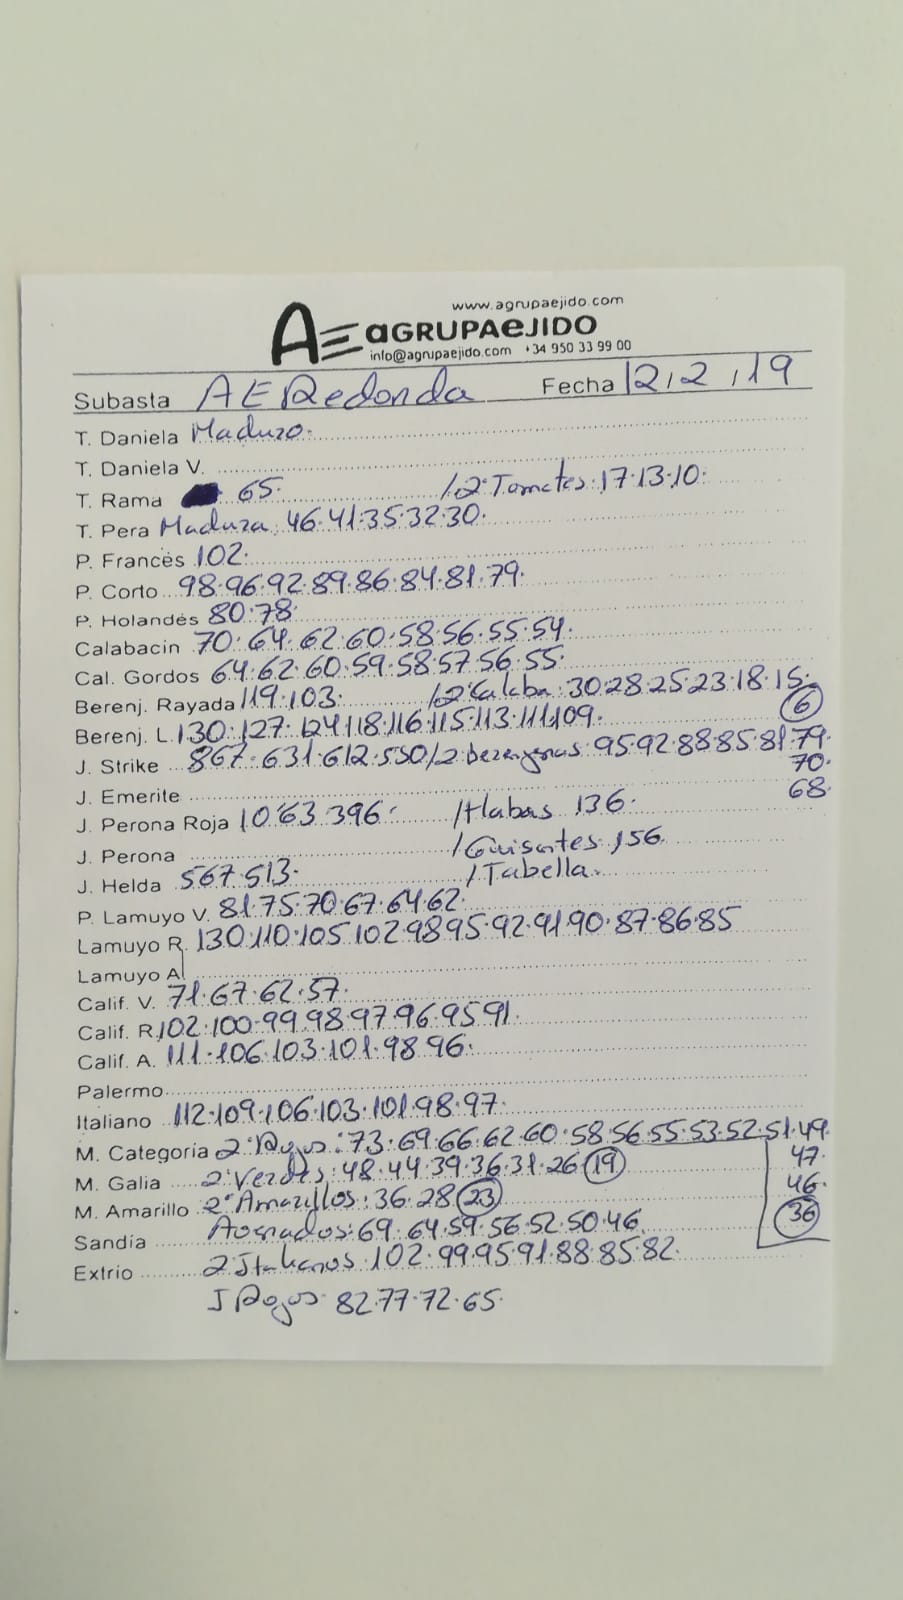 www.agrupaejido.com
AE aGRUPAeJIDO
info@agrupaejido.com +34 950 33 99 00
Subasta AE Redonda Fecha 12/2/19
T. Daniela Maduro.
T. Daniela V.
T. Rama 65. /2ª Tomates: 17·13·10.
T. Pera Maduza 46·41·35·32·30.
P. Francés 102.
P. Corto 98·96·92·89·86·84·81·79.
P. Holandés 80·78
Calabacin 70·64·62·60·58·56·55·54.
Cal. Gordos 64·62·60·59·58·57·56·55.
Berenj. Rayada 119·103. /2ª Calaba: 30·28·25·23·18·15.
6
Berenj. L. 130·127·124·118·116·115·113·111·109.
J. Strike 867·631·612·550 /2 berengenas: 95·92·88·85·81·79.
70.
J. Emerite 68.
J. Perona Roja 10'63 396. /Habas 136.
J. Perona /Guisantes 156.
J. Helda 567·513. /Tabella.
P. Lamuyo V. 81·75·70·67·64·62.
Lamuyo R. 130·110·105·102·98·95·92·91·90·87·86·85
Lamuyo A
Calif. V. 71·67·62·57.
Calif. R. 102·100·99·98·97·96·95·91.
Calif. A. 111·106·103·101·98·96.
Palermo
Italiano 112·109·106·103·101·98·97.
M. Categoria 2ª Rojos: 73·69·66·62·60·58·56·55·53·52·51·49.
47.
M. Galia 2ª Verdes: 48·44·39·36·31·26 19
46.
M. Amarillo 2ª Amarillos: 36·28 23
36
Sandía Asurados: 69·64·59·56·52·50·46.
Extrio 2 Italianos: 102·99·95·91·88·85·82.
J Rojos 82·77·72·65.